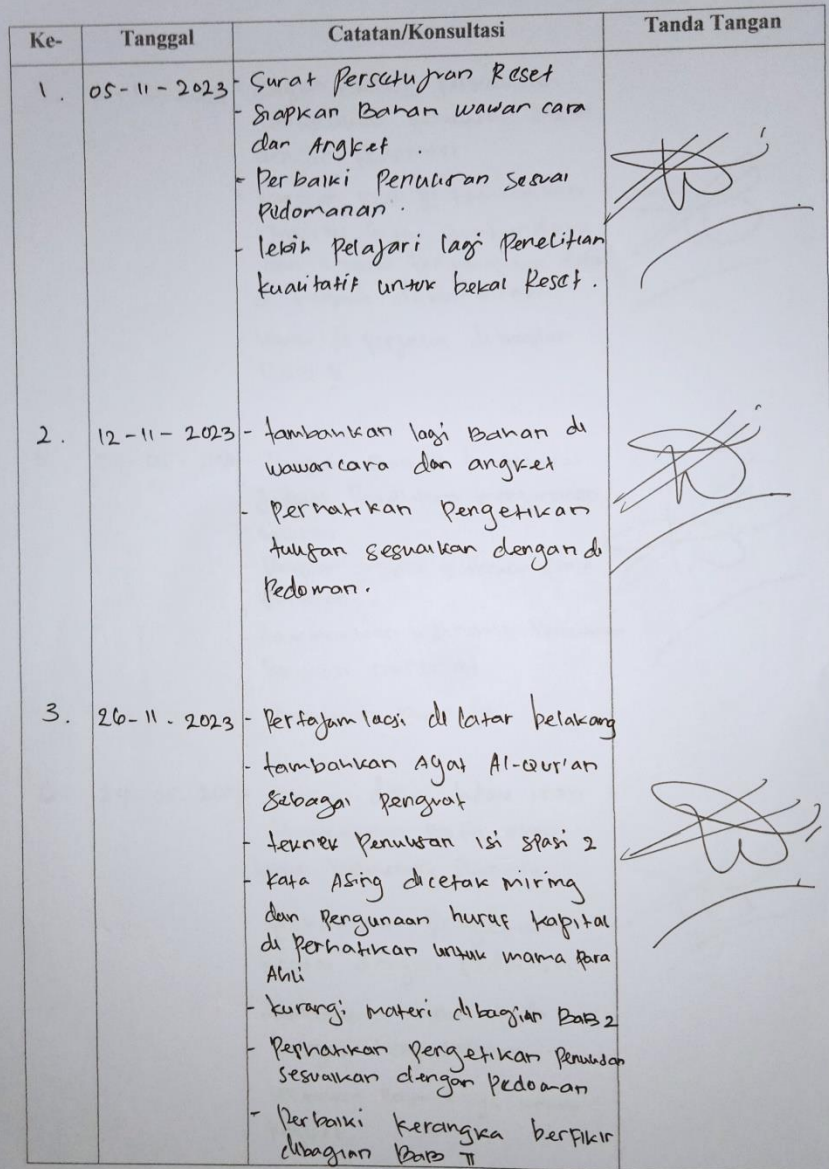 Ke- Tanggal Catatan/Konsultasi Tanda Tangan
1. 05-11-2023 - Surat Persetujuan Reset
- Siapkan Bahan wawancara
dan Angket.
- Perbaiki Penulisan Sesuai
Pedomanan.
- lebih Pelajari lagi Penelitian
kualitatif untuk bekal Reset.
2. 12-11-2023 - tambahkan lagi Bahan di
wawancara dan angket
- Perhatikan Pengetikan
tulisan sesuaikan dengan di
Pedoman.
3. 26-11-2023 - Pertajam lagi di latar belakang
- tambahkan Ayat Al-Qur'an
Sebagai Penguat
- teknek Penulisan isi spasi 2
- Kata Asing dicetak miring
dan Pengunaan huruf kapital
di Perhatikan untuk mama Para
Ahli
- kurangi materi dibagian BAB 2
- Pephatikan Pengetikan Penulisan
sesuaikan dengan Pedoman
- Perbaiki kerangka berfikir
dibagian BAB II